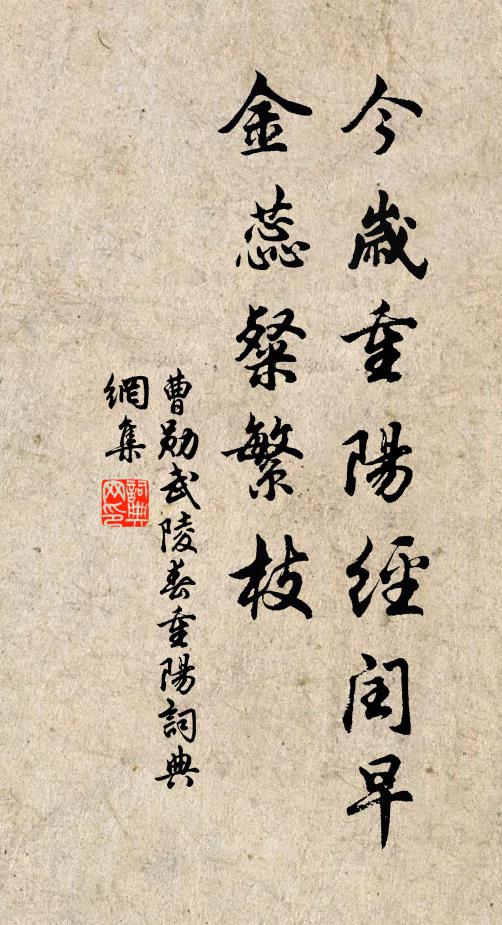 今歲重陽經閏早
金蕊粲繁枝
曹勛武陵春重陽詞典
網集
詞典
网印